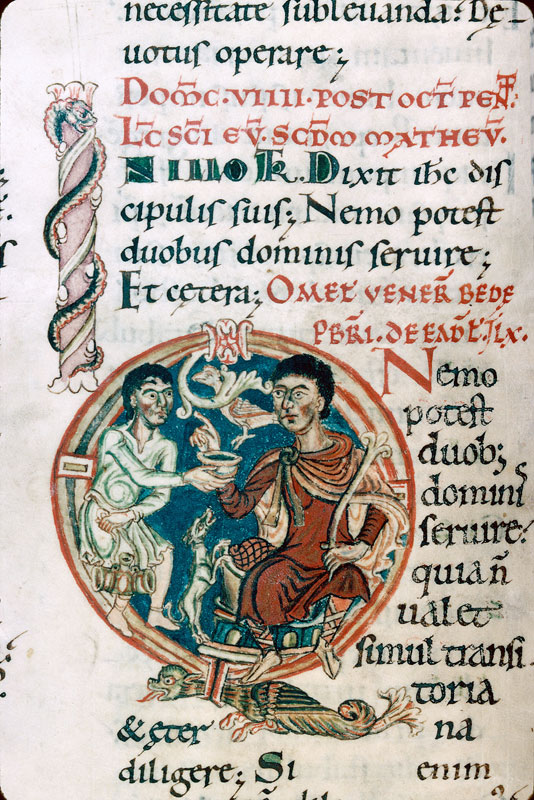 necessitate subleuanda: De
uotus operare;
DOM̅C·VIIII·POST OCT̅ PEN̅T:
LC̅ SC̅I EV̅·SCD̅M MATHEV̅·
N ILLO T̅R·Dixit ih̅c dis
cipulis suis; Nemo potest
duobus dominis seruire;
Et cętera; OMEL̅ VENER̅ BEDE
PB̅RI·DE EAD̅E L̅IX·
Nemo
potest
duob;
domini
seruire:
quia n̅
ualet
simul transi
toria
& ęter na
diligere; Si enim